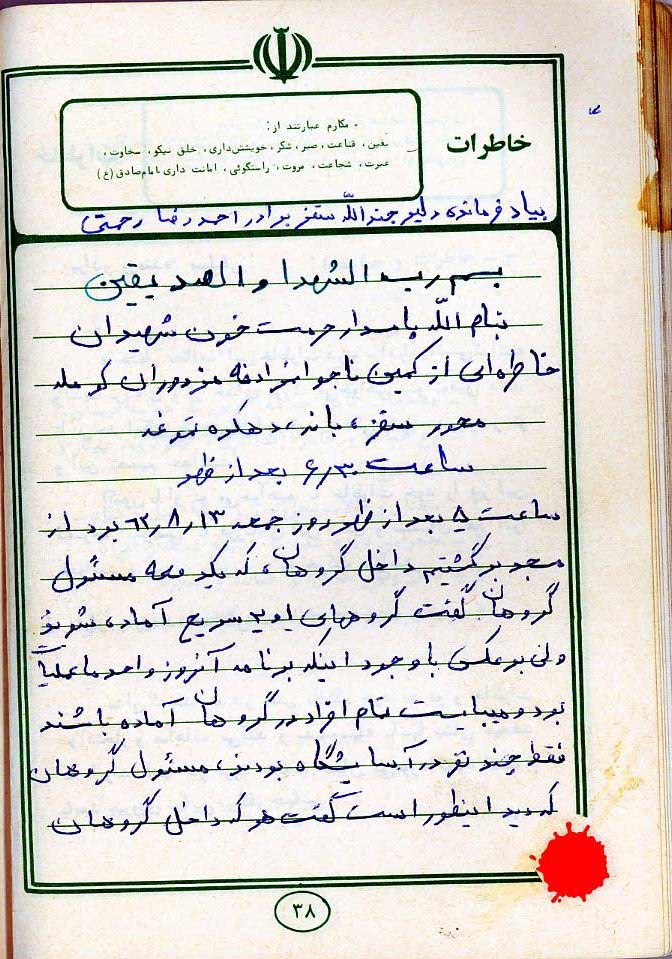 خاطرات
مکارم عبارتند از:
یقین، قناعت، صبر، شکر، خویشتن‌داری، خلق نیکو، سخاوت،
غیرت، شجاعت، مروت، راستگوئی، امانت داری، امام‌صادق(ع)
بیاد فرمانده دلیر جندالله سقز برادر احمد رضا رحمتی
بسم رب الشهدا والصدیقین
بنام الله پاسدار حرمت خون شهیدان
خاطره‌ای از کمین ناجوانمردانه مزدوران کومله
محور سقز، بانه، دهکده
ساعت ۶/۳۰ بعد از ظهر
ساعت ۵ بعد از ظهر روز جمعه ۶۲٫۸٫۱۳ بود از
مسجد برگشتیم داخل گروهان، که یکدفعه مسئول
گروهان گفت گروههای ۱و۲ سریع آماده شوید
ولی برعکس با وجود اینکه برنامه آنروز واحد ما عملیات
بود و میبایست تمام افراد در گروهان آماده باشند
فقط چند نفر در آسایشگاه بودند، مسئول گروهان
که دید اینطور است گفت هر که داخل گروهان
۳۸